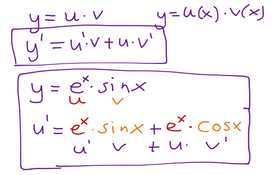 y = u · v    y = u(x) · v(x)
y' = u'·v + u·v'
y = eˣ · sinx
u v
u' = eˣ · sinx + eˣ · cosx
u' v + u · v'